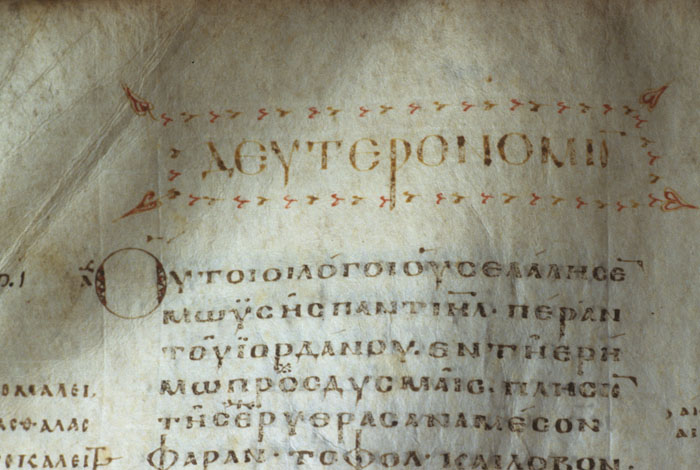 ΔΕΥΤΕΡΟΝΟΜΙ
ΟΥΤΟΙΟΙΛΟΓΟΙΟΥϹΕΛΑΛΗϹΕ
ΜΩΥϹΗϹΠΑΝΤΙΗΛ· ΠΕΡΑΝ
ΤΟΥΪΟΡΔΑΝΟΥ. ΕΝΤΗΕΡΗ
ΜΩΠΡΟϹΔΥϹΜΑΙϹ. ΠΛΗϹΙ
ΤΗϹΕΡΥΘΡΑϹΑΝΑΜΕϹΟΝ
ΦΑΡΑΝ· ΤΟΦΟΛ· ΚΑΙΛΟΒΟΝ